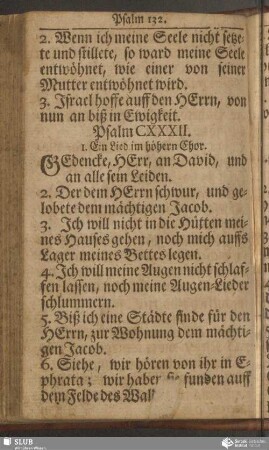 Psalm 132.
2. Wenn ich meine Seele nicht setze-
te und stillete, so ward meine Seele
entwöhnet, wie einer von seiner
Mutter entwöhnet wird.
3. Israel hoffe auff den HErrn, von
nun an biß in Ewigkeit.
Psalm CXXXII.
1. Ein Lied im höhern Chor.
GEdencke, HErr, an David, und
an alle sein Leiden.
2. Der dem HErrn schwur, und ge-
lobete dem mächtigen Jacob.
3. Ich will nicht in die Hütten mei-
nes Hauses gehen, noch mich auffs
Lager meines Bettes legen.
4. Ich will meine Augen nicht schlaf-
fen lassen, noch meine Augen-Lieder
schlummern.
5. Biß ich eine Städte finde für den
HErrn, zur Wohnung dem mächti-
gen Jacob.
6. Siehe, wir hören von ihr in E-
phrata; wir haben funden auff
dem Felde des Wal
SLUB
Wir führen Wissen.